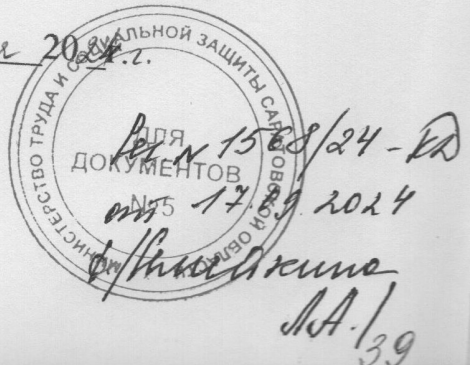 2024 г.
МИНИСТЕРСТВО ТРУДА И СОЦИАЛЬНОЙ ЗАЩИТЫ САРАТОВСКОЙ ОБЛАСТИ
ДЛЯ
ДОКУМЕНТОВ
№5
Рег № 1568/24-КД
от 17.09 2024
Л.А./
39